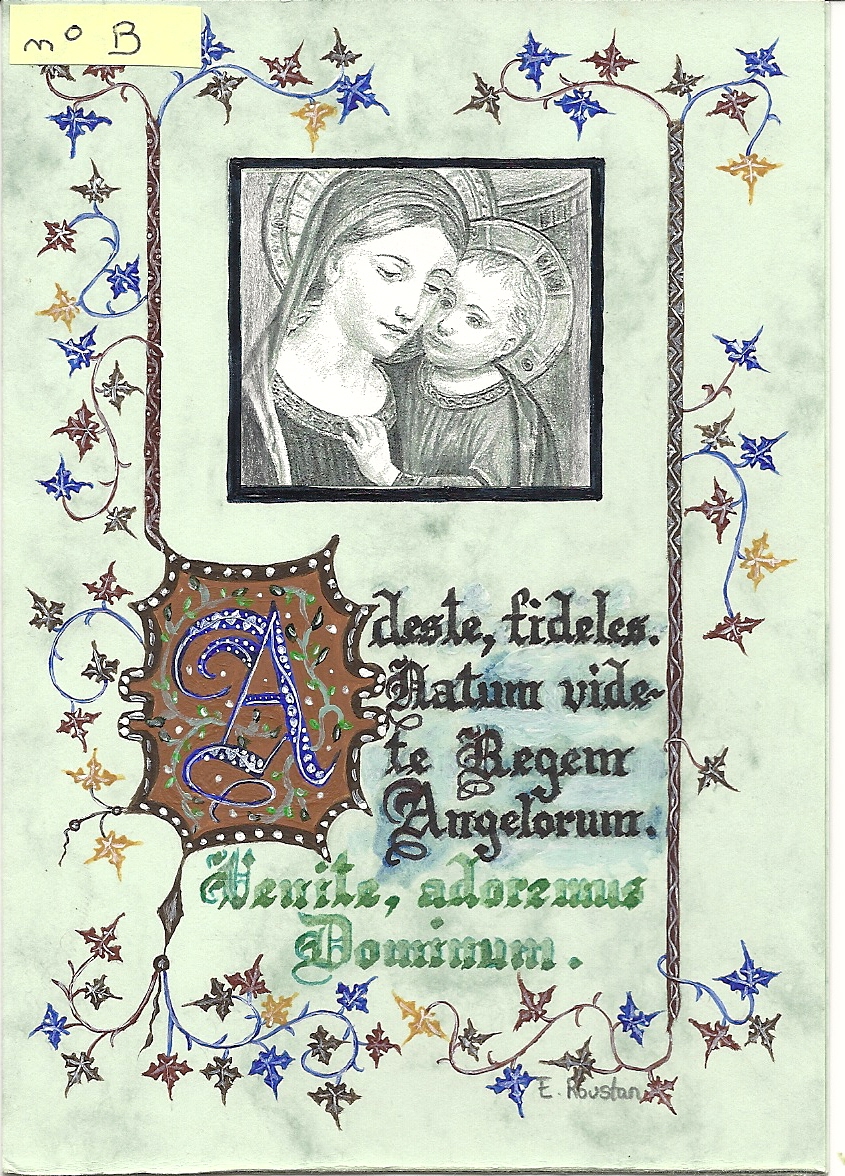 nº B
Adeste, fideles.
Natum vide-
te Regem
Angelorum.
Venite, adoremus
Dominum.
E. Roustan